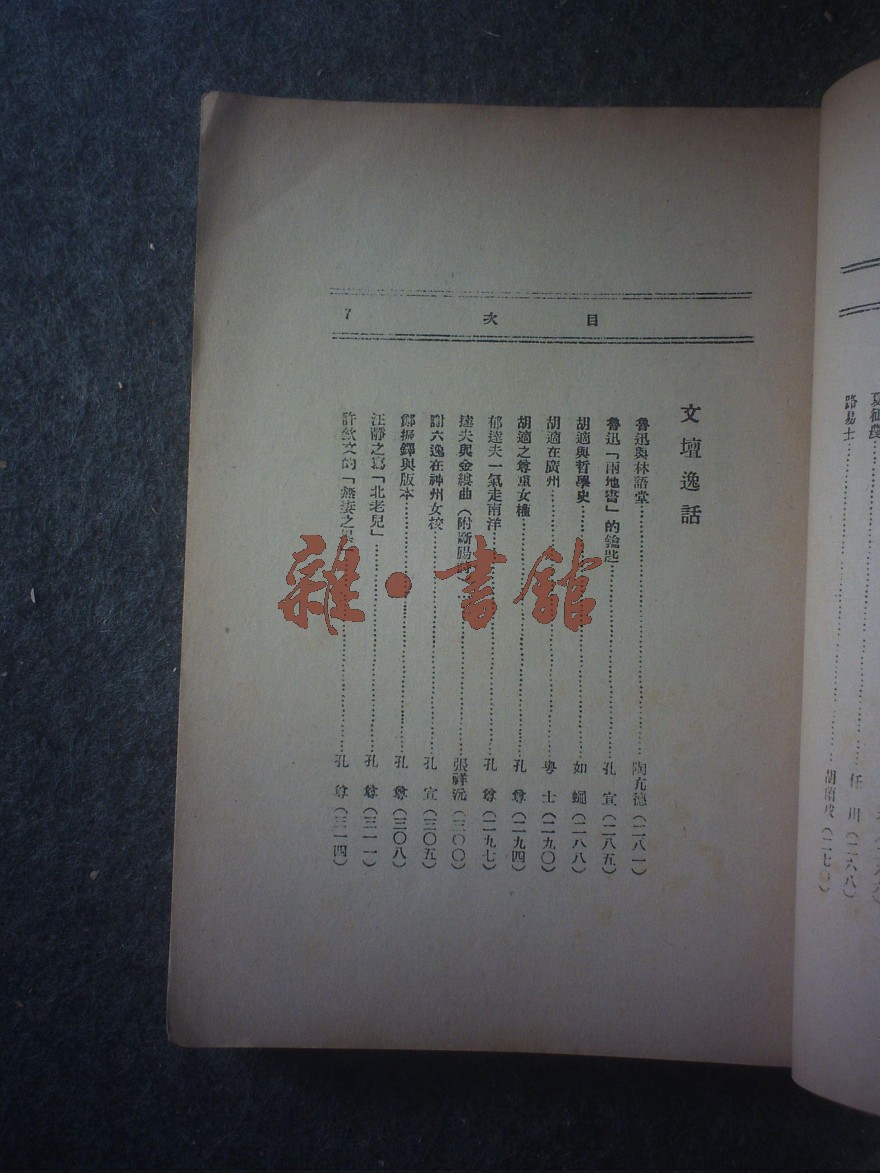 路易士……任川(二六八)
胡蘭成
7 次目
文壇逸話
魯迅與林語堂……陶亢德(二八一)
魯迅「兩地書」的鑰匙……孔宣(二八五)
胡適與哲學史……如蠅(二八八)
胡適在廣州……粵士(二九〇)
胡適之尊重女權……孔尊(二九四)
郁達夫一氣走南洋……孔尊(二九七)
達夫與金縷曲(附斷腸……張祥沅(三〇〇)
謝六逸在神州女校……孔宣(三〇五)
鄭振鐸與版本……孔尊(三〇八)
汪靜之寫「北老兒」……孔尊(三一一)
許欽文的「無妻之……孔尊(三一四)
雜·書館